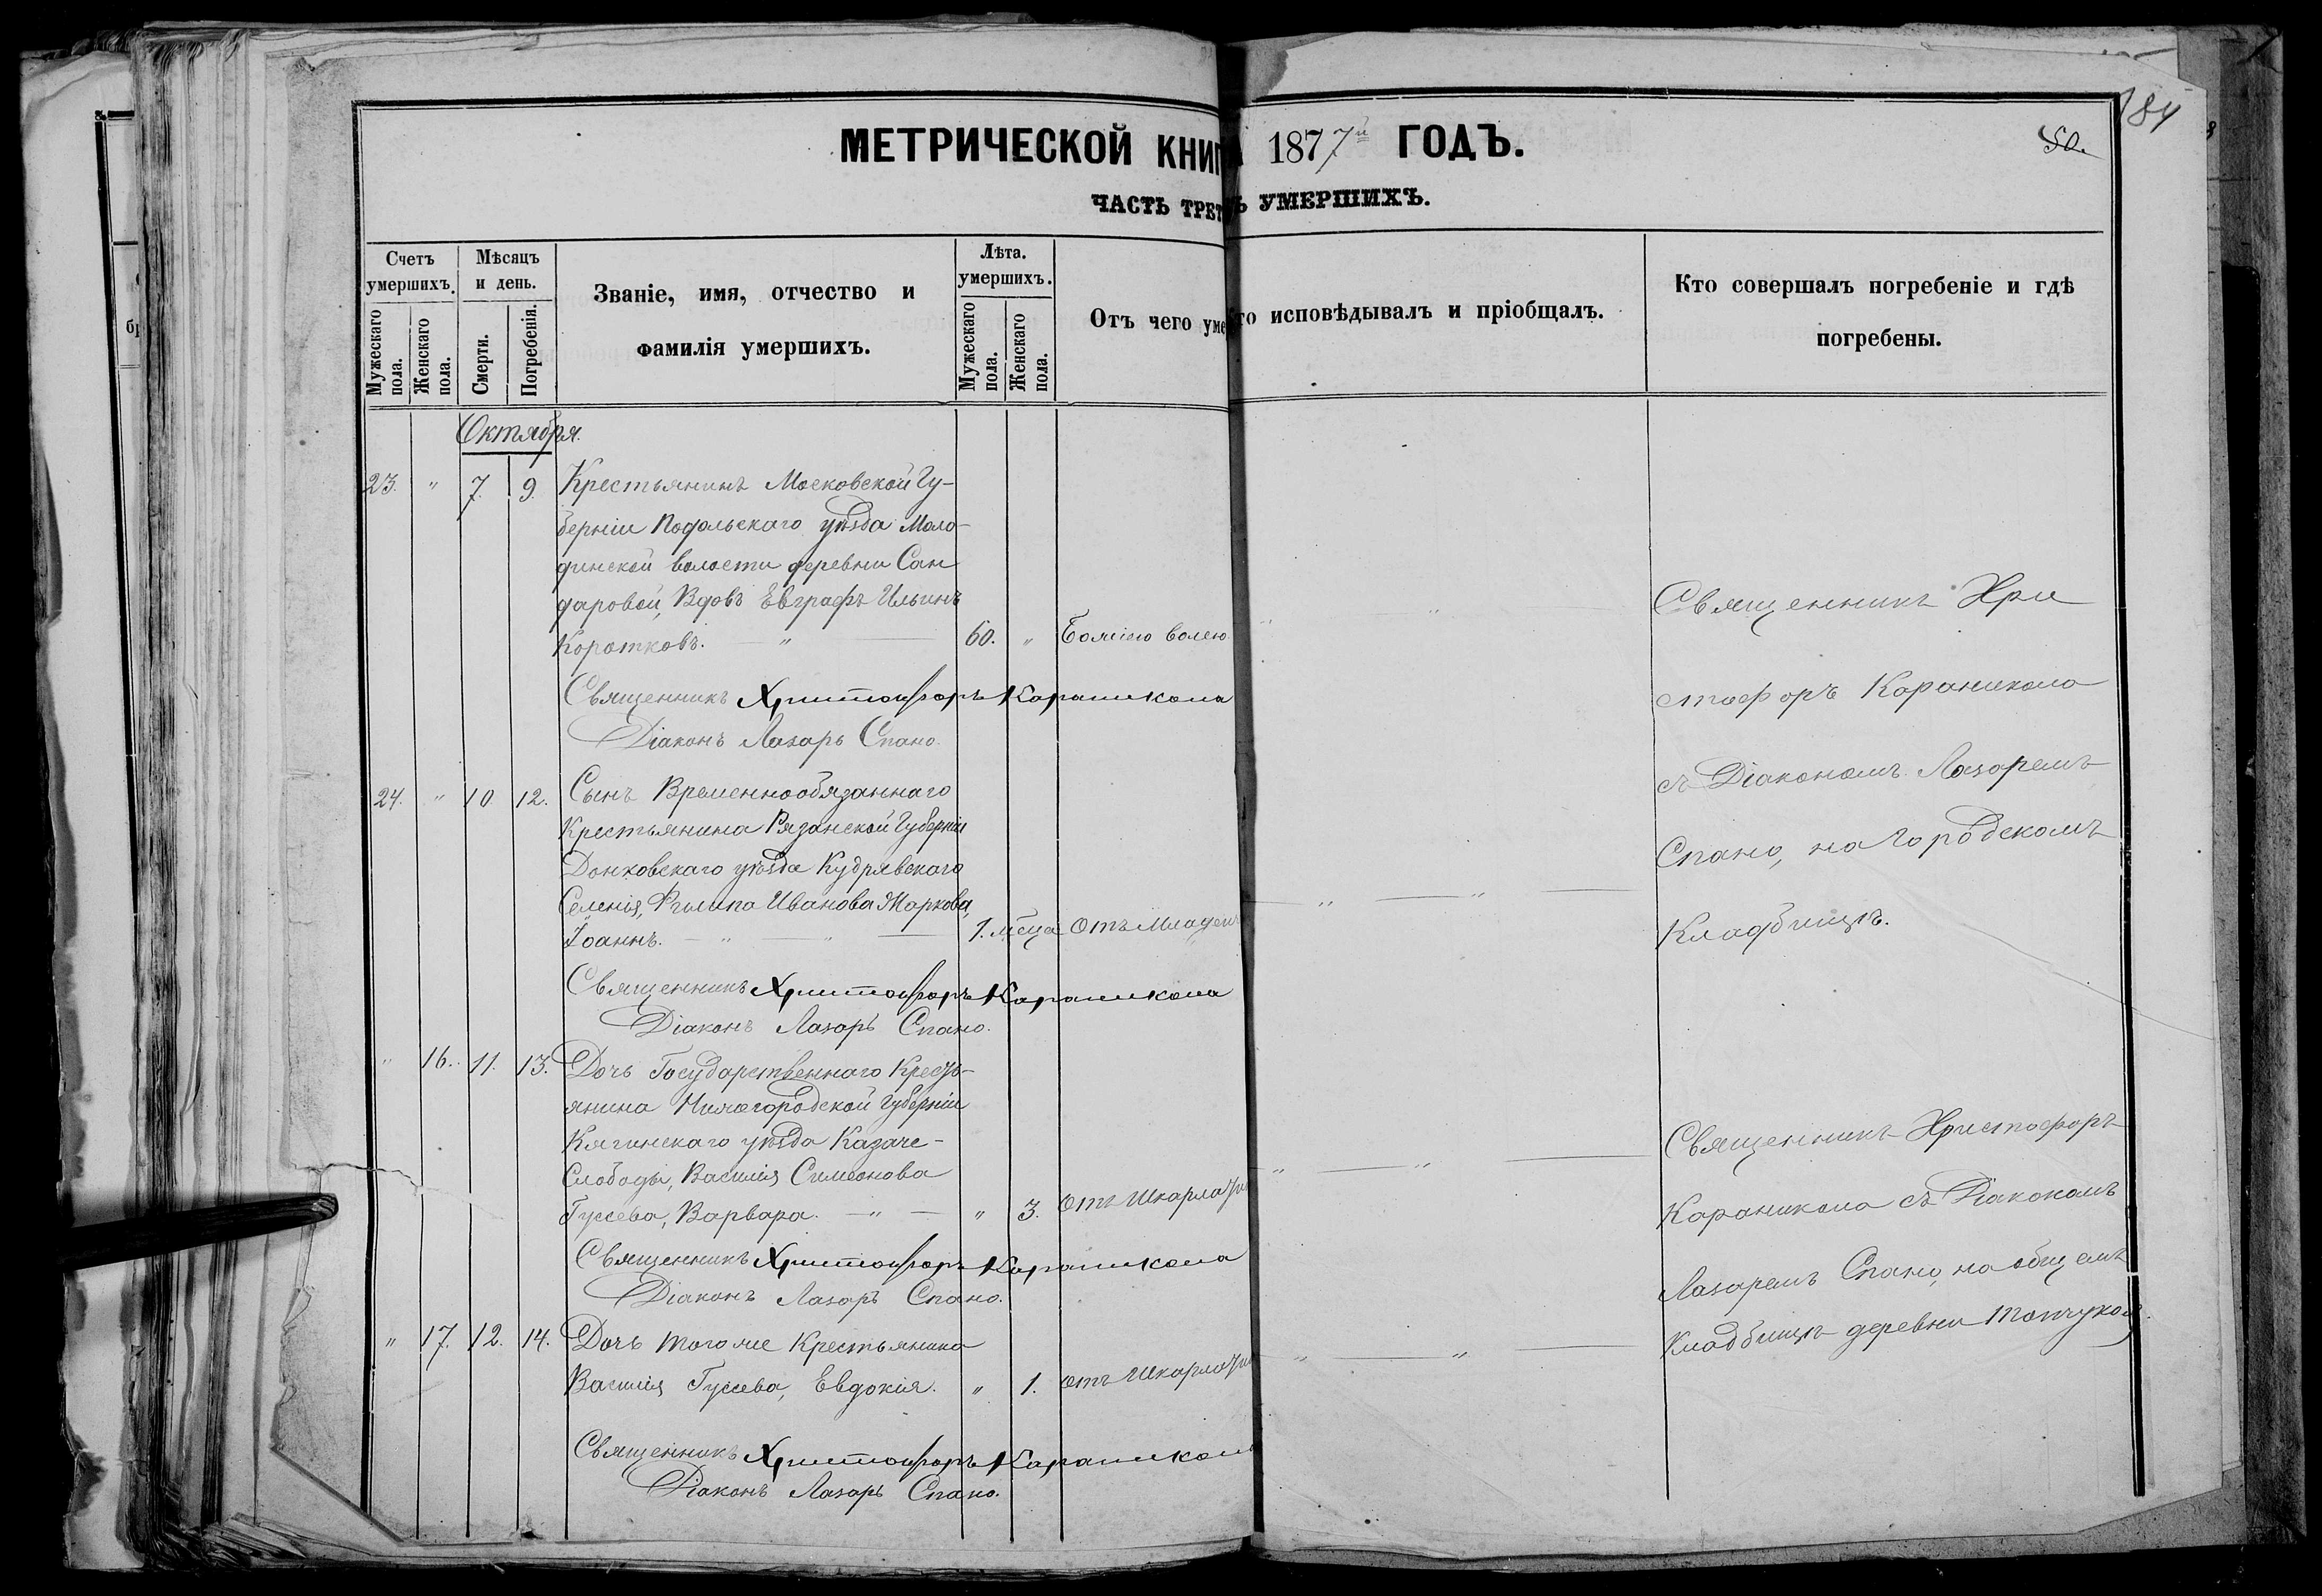 184
50.
МЕТРИЧЕСКОЙ КНИГ 1877й ГОДЪ.
ЧАСТЬ ТРЕТ Ъ УМЕРШИХЪ.
Счетъ умершихъ.
Мужескаго пола.
Женскаго пола.
Мѣсяцъ и день.
Смерти.
Погребенія.
Званіе, имя, отчество и
фамилія умершихъ.
Лѣта.
умершихъ.
Мужескаго пола.
Женскаго пола.
Отъ чего уме
то исповѣдывалъ и пріобщалъ.
Кто совершалъ погребеніе и гдѣ
погребены.
Октября.
23. " 7. 9. Крестьянинъ Московской Гу-
берніи Подольскаго уѣзда Моло-
динской волости деревни Сан
даровой, Вдовъ Евграфъ Ильинъ
Коротковъ. — " — 60. " Божіею волею
Священникъ Христофоръ Караникола
Діаконъ Лазарь Спано.
24. " 10. 12. Сынъ Временнообязаннаго
Крестьянина Рязанской Губерніи
Донковскаго уѣзда Кудрявскаго
Селенія, Филипа Иванова Маркова,
Іоаннъ. — " — " — 1. м̃сца Отъ Младен
Священникъ Христофоръ Караникола
Діаконъ Лазарь Спано.
" 16. 11. 13. Дочь Государственнаго Кресть-
янина Нижегородской Губерніи
Княгинскаго уѣзда Казаче-
Слободы, Василія Симеонова
Гуссева, Варвара. — " — " 3. Отъ Шкарлати
Священникъ Христофоръ Караникола
Діаконъ Лазарь Спано.
" 17. 12. 14. Дочь того же Крестьянина
Василія Гуссева, Евдокія. " 1. отъ Шкарлати
Священникъ Христофоръ Караникола
Діаконъ Лазарь Спано.
Священникъ Хри
стофоръ Караникола
съ Діакономъ Лазаремъ
Спано, на Городскомъ
Кладбищѣ.
Священникъ Христофоръ
Караникола съ Діакономъ
Лазаремъ Спано, на общемъ
Кладбищѣ деревни